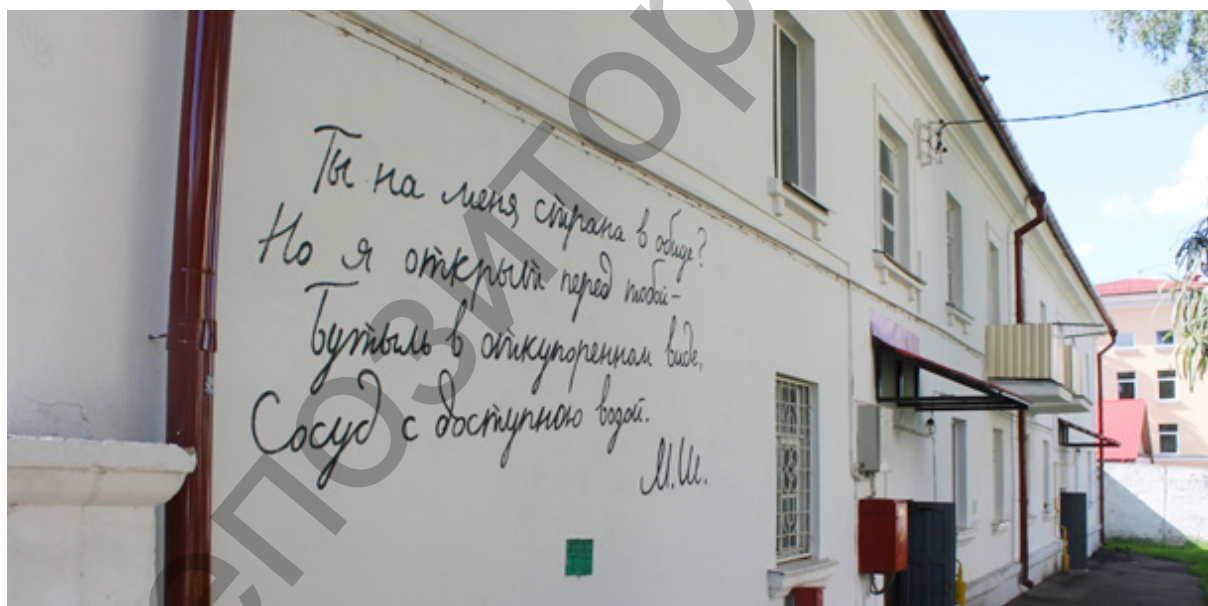 Ты на меня, страна в обиде?
Но я открыт перед тобой –
Бутыль в откупоренном виде,
Сосуд с доступною водой.
М.Ш.
епозитор